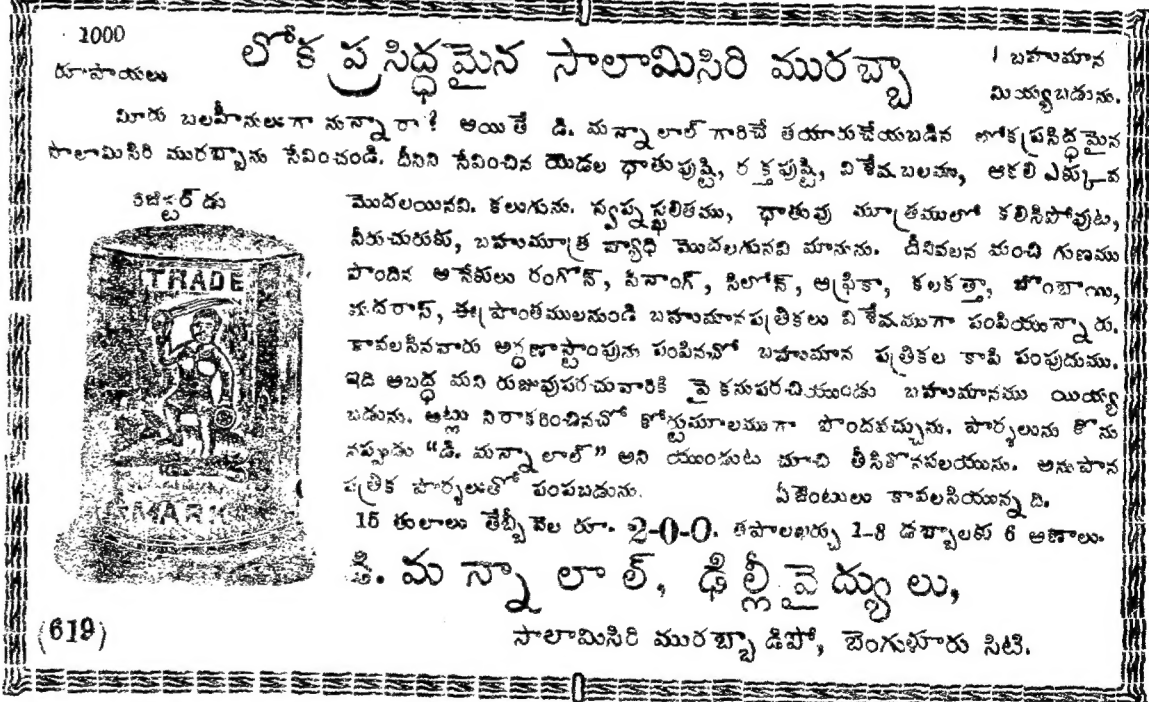 1000
రూపాయలు
లోక ప్రసిద్ధమైన సాలామిసిరి మురబ్బా
! బహుమాన
మియ్యబడును.
మీరు బలహీనులుగా నున్నారా? అయితే డి. మన్నాలాల్ గారిచే తయారుచేయబడిన లోకప్రసిద్ధమైన
సాలామిసిరి మురబ్బాను సేవించండి. దీనిని సేవించిన యెడల ధాతుపుష్టి, రక్తపుష్టి, విశేషబలము, ఆకలి ఎక్కువ
రిజిస్టర్ డు
మొదలయినవి. కలుగును. స్వప్నస్ఖలితము, ధాతువు మూత్రములో కలిసిపోవుట,
నీరుచురుకు, బహుమూత్ర వ్యాధి మొదలగునవి మానును. దీనివలన మంచి గుణము
పొందిన అనేకులు రంగోన్, పినాంగ్, సిలోన్, ఆఫ్రికా, కలకత్తా, బొంబాయి,
మదరాస్, ఈ ప్రాంతములనుండి బహుమానపత్రికలు విశేషముగా పంపియున్నారు.
కావలసినవారు అర్ధణాస్టాంపును పంపినచో బహుమాన పత్రికల కాపి పంపుదుము.
ఇది అబద్ధ మని రుజువుపరచువారికి పై కనుపరచియుండు బహుమానము యియ్య
బడును. అట్లు నిరాకరించినచో కోర్టుమూలముగా పొందవచ్చును. పార్శలును కొను
నప్పుడు "డి. మన్నాలాల్" అని యుండుట చూచి తీసికొనవలయును. అనుపాన
పత్రిక పార్శలుతో పంపబడును. ఏజెంటులు కావలసియున్నది.
15 తులాలు తేబ్బీ వెల రూ. 2-0-0. తపాలఖర్చు 1-8 డబ్బాలకు 6 అణాలు.
TRADE
MARK
డి. మన్నాలాల్, ఢిల్లీవైద్యులు,
(619)
సాలామిసిరి మురబ్బా డిపో, బెంగుళూరు సిటి.